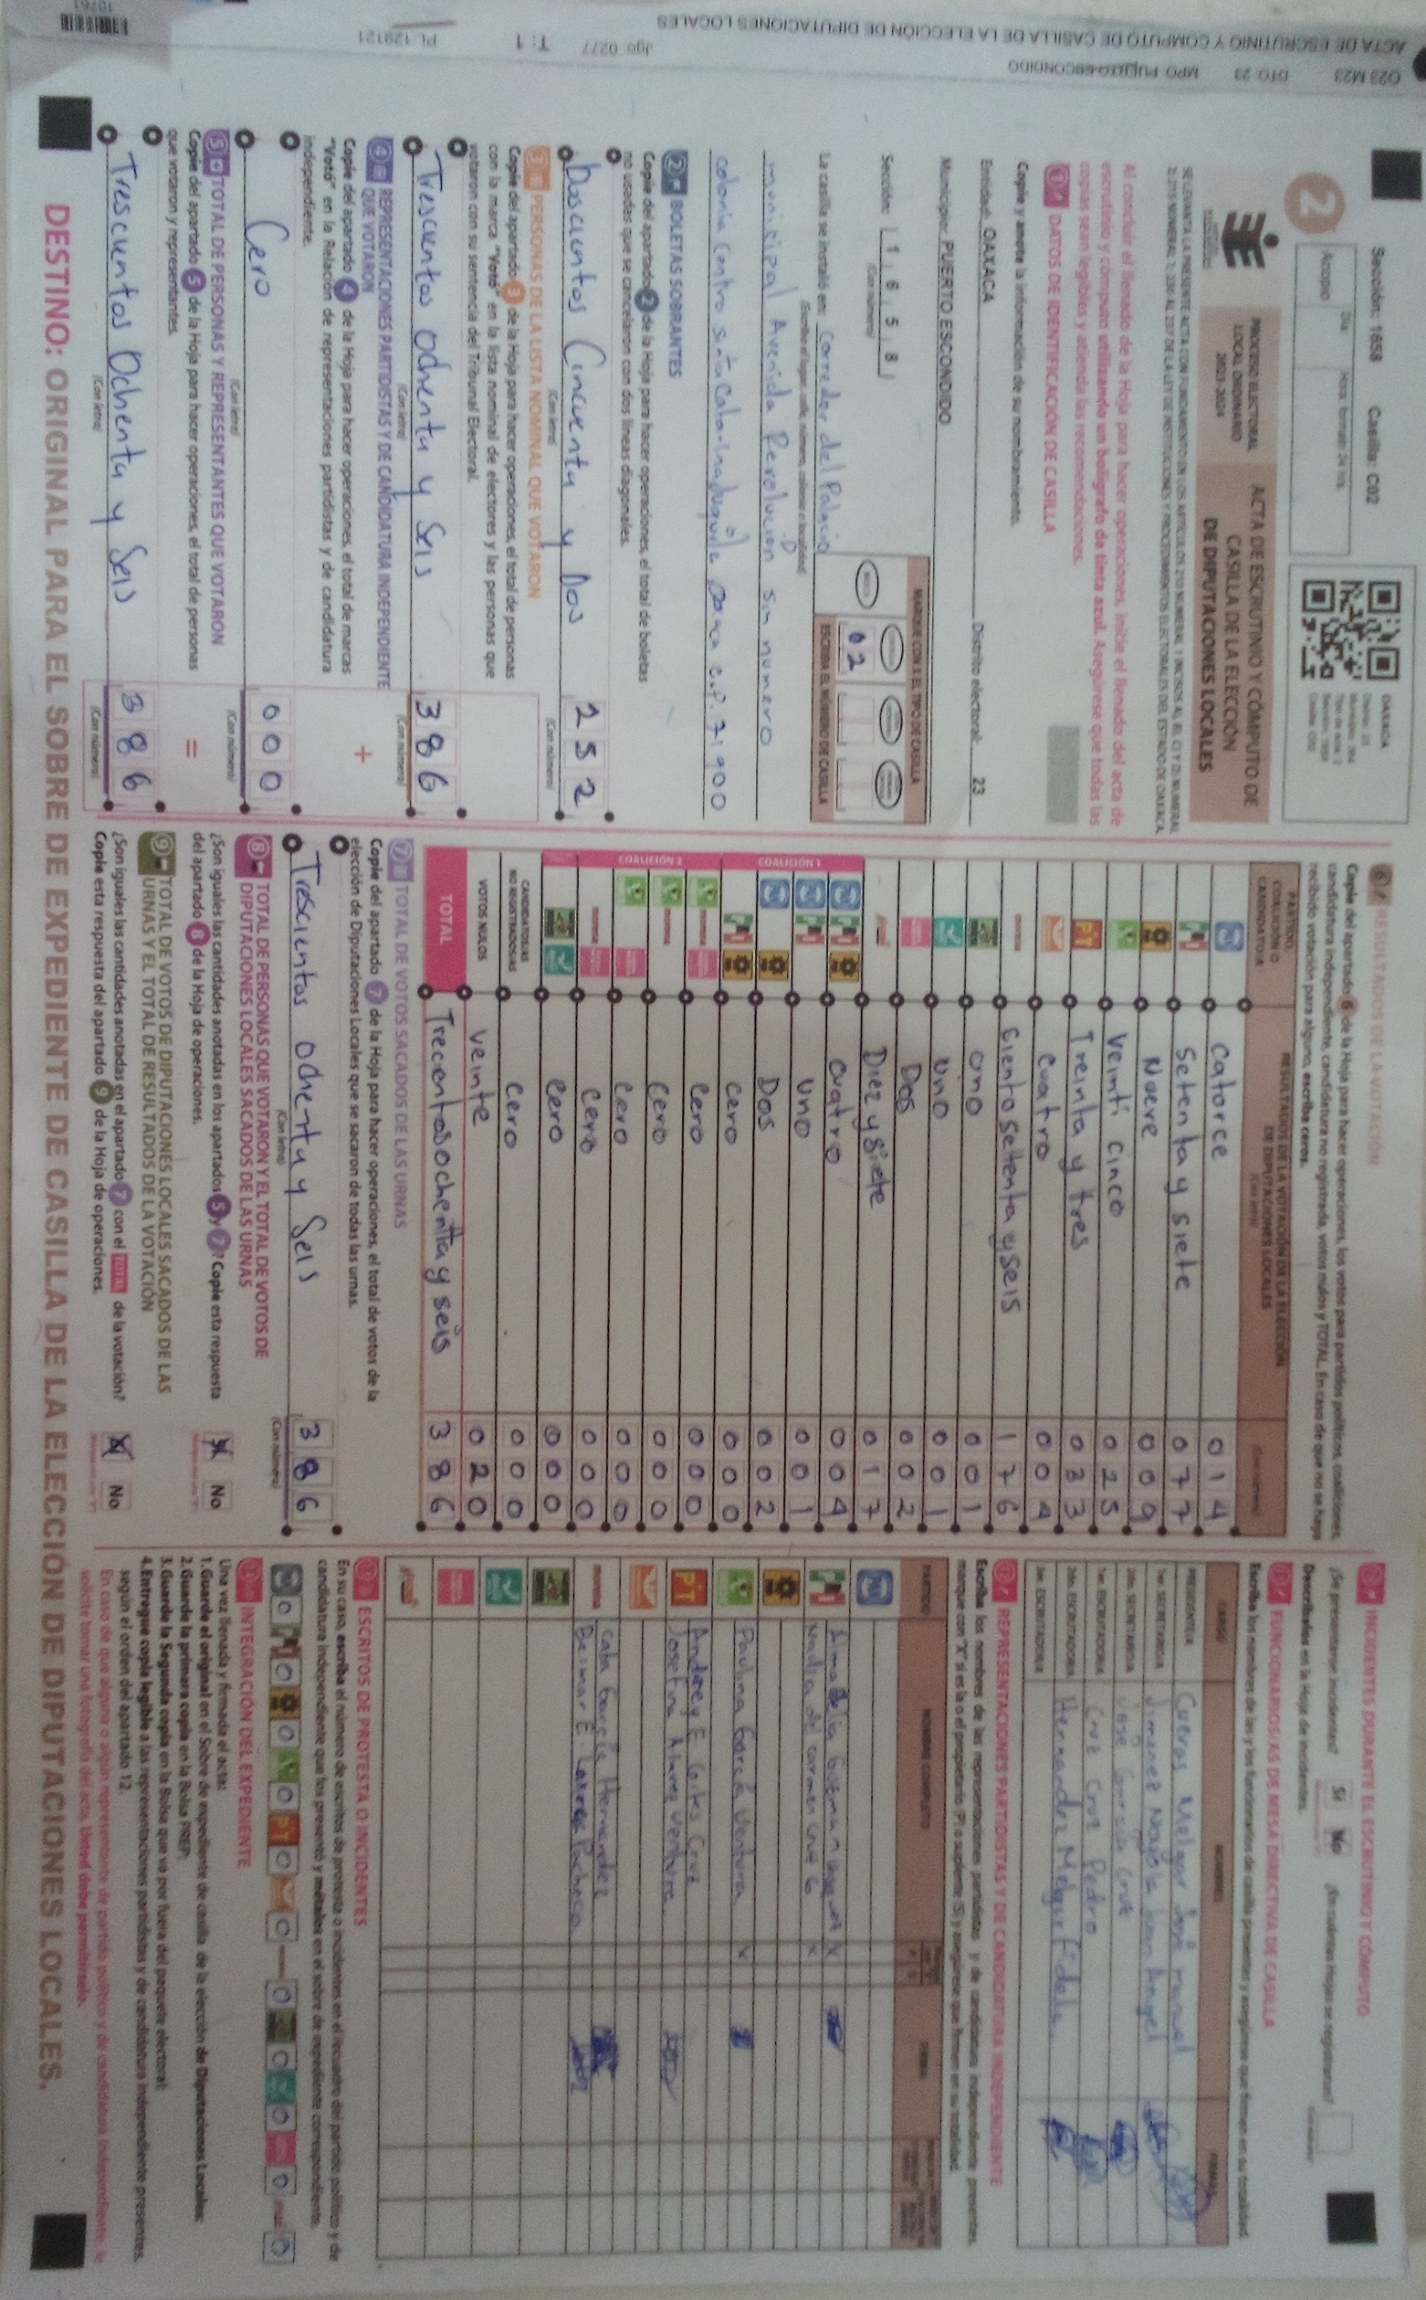 Sección: 1658 Casilla: C02
2
Acopio
Día
Hora: formato 24 hrs.
OAXACA
PROCESO ELECTORAL
LOCAL ORDINARIO
2023-2024
ACTA DE ESCRUTINIO Y CÓMPUTO DE
CASILLA DE LA ELECCIÓN
DE DIPUTACIONES LOCALES
Al concluir el llenado de la Hoja para hacer operaciones, inicie el llenado del acta de
escrutinio y cómputo utilizando un bolígrafo de tinta azul. Asegúrese que todas las
copias sean legibles y atienda las recomendaciones.
1 DATOS DE IDENTIFICACIÓN DE CASILLA
Copie y anote la información de su nombramiento.
Entidad: OAXACA Distrito electoral: 23
Municipio: PUERTO ESCONDIDO
Sección: 1 6 5 8
(Con número)
MARQUE CON X EL TIPO DE CASILLA
02
ESCRIBA EL NÚMERO DE CASILLA
La casilla se instaló en: Corredor del Palacio
municipal Avenida Revolución sin numero
colonia Centro c.p. 71900
2 BOLETAS SOBRANTES
Copie del apartado 2 de la Hoja para hacer operaciones, el total de boletas
no usadas que se cancelaron con dos líneas diagonales.
Doscientos Cincuenta y Dos 252
(Con letra) (Con número)
3 PERSONAS DE LA LISTA NOMINAL QUE VOTARON
Copie del apartado 3 de la Hoja para hacer operaciones, el total de personas
con la marca "Votó" en la lista nominal de electores y las personas que
votaron con su sentencia del Tribunal Electoral.
Trescientos Ochenta y Seis 386
(Con letra) (Con número)
4 REPRESENTACIONES PARTIDISTAS Y DE CANDIDATURA INDEPENDIENTE
QUE VOTARON
Copie del apartado 4 de la Hoja para hacer operaciones, el total de marcas
"Votó" en la Relación de representaciones partidistas y de candidatura
independiente.
+
Cero 000
(Con letra) (Con número)
5 TOTAL DE PERSONAS Y REPRESENTANTES QUE VOTARON
Copie del apartado 5 de la Hoja para hacer operaciones, el total de personas
que votaron y representantes.
=
Trescientos Ochenta y Seis 386
(Con letra) (Con número)
6 RESULTADOS DE LA VOTACIÓN
Copie del apartado 6 de la Hoja para hacer operaciones, los votos para partidos políticos, coaliciones,
candidatura independiente, candidatura no registrada, votos nulos y TOTAL. En caso de que no se haya
recibido votación para alguno, escriba ceros.
PARTIDO,
COALICIÓN O
CANDIDATURA
RESULTADOS DE LA VOTACIÓN DE LA ELECCIÓN
DE DIPUTACIONES LOCALES
(Con letra)
catorce 014
Setenta y siete 077
Nueve 009
Veinti cinco 025
PT Treinta y tres 033
cuatro 004
morena Ciento setenta y seis 176
uno 001
uno 001
Dos 002
Diez y siete 017
COALICIÓN 1
cuatro 004
uno 001
Dos 002
cero 000
COALICIÓN 2
Cero 000
cero 000
cero 000
cero 000
cero 000
CANDIDATOS/AS
NO REGISTRADOS/AS
cero 000
VOTOS NULOS veinte 020
TOTAL Trecientos ochentta y seis 386
7 TOTAL DE VOTOS SACADOS DE LAS URNAS
Copie del apartado 7 de la Hoja para hacer operaciones, el total de votos de la
elección de Diputaciones Locales que se sacaron de todas las urnas.
Trescientos Ochenta y Seis 386
(Con letra) (Con número)
8 TOTAL DE PERSONAS QUE VOTARON Y EL TOTAL DE VOTOS DE
DIPUTACIONES LOCALES SACADOS DE LAS URNAS
¿Son iguales las cantidades anotadas en los apartados 5 y 7? Copie esta respuesta
del apartado 8 de la Hoja de operaciones.
Sí No
9 TOTAL DE VOTOS DE DIPUTACIONES LOCALES SACADOS DE LAS
URNAS Y EL TOTAL DE RESULTADOS DE LA VOTACIÓN
¿Son iguales las cantidades anotadas en el apartado 7 con el TOTAL de la votación?
Copie esta respuesta del apartado 9 de la Hoja de operaciones.
Sí No
INCIDENTES DURANTE EL ESCRUTINIO Y CÓMPUTO
¿Se presentaron incidentes? Sí No ¿En cuántas Hojas se registraron?
Descríbalos en la Hoja de incidentes.
FUNCIONARIOS/AS DE MESA DIRECTIVA DE CASILLA
Escriba los nombres de las y los funcionarios de casilla presentes y asegúrese que firmen en su totalidad.
CARGO NOMBRES FIRMAS
PRESIDENTE/A Cuevas Melgar José manuel
1er. SECRETARIO/A
2do. SECRETARIO/A José García Cruz
1er. ESCRUTADOR/A Cruz Cruz Pedro
2do. ESCRUTADOR/A Hernandez Melgar Fidela
3er. ESCRUTADOR/A
REPRESENTACIONES PARTIDISTAS Y DE CANDIDATURA INDEPENDIENTE
Escriba los nombres de las representaciones partidistas y de candidatura independiente presentes,
marque con "X" si es la o el propietario (P) o suplente (S) y asegúrese que firmen en su totalidad.
PARTIDO NOMBRE COMPLETO FIRMA
Nadia del carmen
Paulina García Ventura X
PT Andrey E. Cruz
Josefina Ventura
morena García Hernandez
Pacheco
ESCRITOS DE PROTESTA O INCIDENTES
En su caso, escriba el número de escritos de protesta o incidentes en el recuadro del partido político y de
candidatura independiente que los presentó y métalos en el sobre de expediente correspondiente.
0 0 0 0 PT 0 0 0 0 0 0 0
INTEGRACIÓN DEL EXPEDIENTE
Una vez llenada y firmada el acta:
1.Guarde el original en el Sobre de expediente de casilla de la elección de Diputaciones Locales;
2.Guarde la primera copia en la Bolsa PREP;
3.Guarde la Segunda copia en la Bolsa que va por fuera del paquete electoral;
4.Entregue copia legible a las representaciones partidistas y de candidatura independiente presentes,
según el orden del apartado 12.
En caso de que alguna o algún representante de partido político y de candidatura independiente, le
solicite tomar una fotografía del acta. Usted debe permitírselo.
DESTINO: ORIGINAL PARA EL SOBRE DE EXPEDIENTE DE CASILLA DE LA ELECCIÓN DE DIPUTACIONES LOCALES.
O23 M23 DTO: 23 MPO: PUERTO ESCONDIDO
ACTA DE ESCRUTINIO Y COMPUTO DE CASILLA DE LA ELECCIÓN DE DIPUTACIONES LOCALES
Jgo: 0277 T: 1 PL:129121
10761